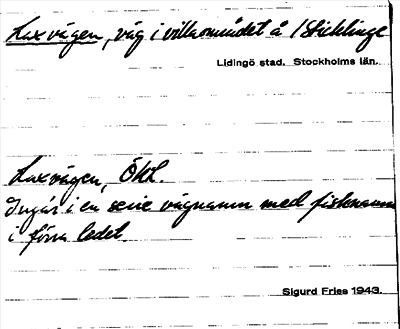 Laxvägen, väg i villaområdet å /Sticklinge
Lidingö stad. Stockholms län.
Laxvägen, Ökk.
Ingår i en serie vägnamn med fisknamn
i förra ledet.
Sigurd Fries 1943.